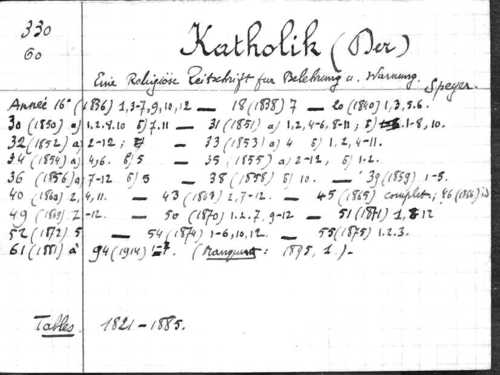 330
60
Katholik (Der)
Eine Religiöse Zeitschrift fur Belehrung u. Warnung.
Speyer.
Année 16e (1836) 1,3-7,9,10,12 — 18 (1838) 7 — 20 (1840) 1,3,5,6.
30 (1850) a) 1,2.8.10 b) 7.11 — 31 (1851) a) 1,2,4-6,8-11; b) 1-8, 10.
32 (1852) a) 2-12; — 33 (1853) a) 4 b) 1,2,4-11.
34 (1854) a) 4,6. b) 5 — 35 (1855) a) 2-12, b) 1-2.
36 (1856) a) 7-12 b) 3 — 38 (1858) b) 10. — 39 (1859) 1-5.
40 (1860) 2,4,11. — 43 (1863) 2,7-12. — 45 (1865) complet; 46 (1866) id
49 (1869) 2-12. — 50 (1870) 1.2.7.9-12 — 51 (1871) 1, 12
52 (1872) 5 — 54 (1874) 1-6,10,12. — 55 (1875) 1.2.3.
61 (1881) à 94 (1914) 1-7. (Manquent: 1895, 1.)-
Tables. 1821-1885.